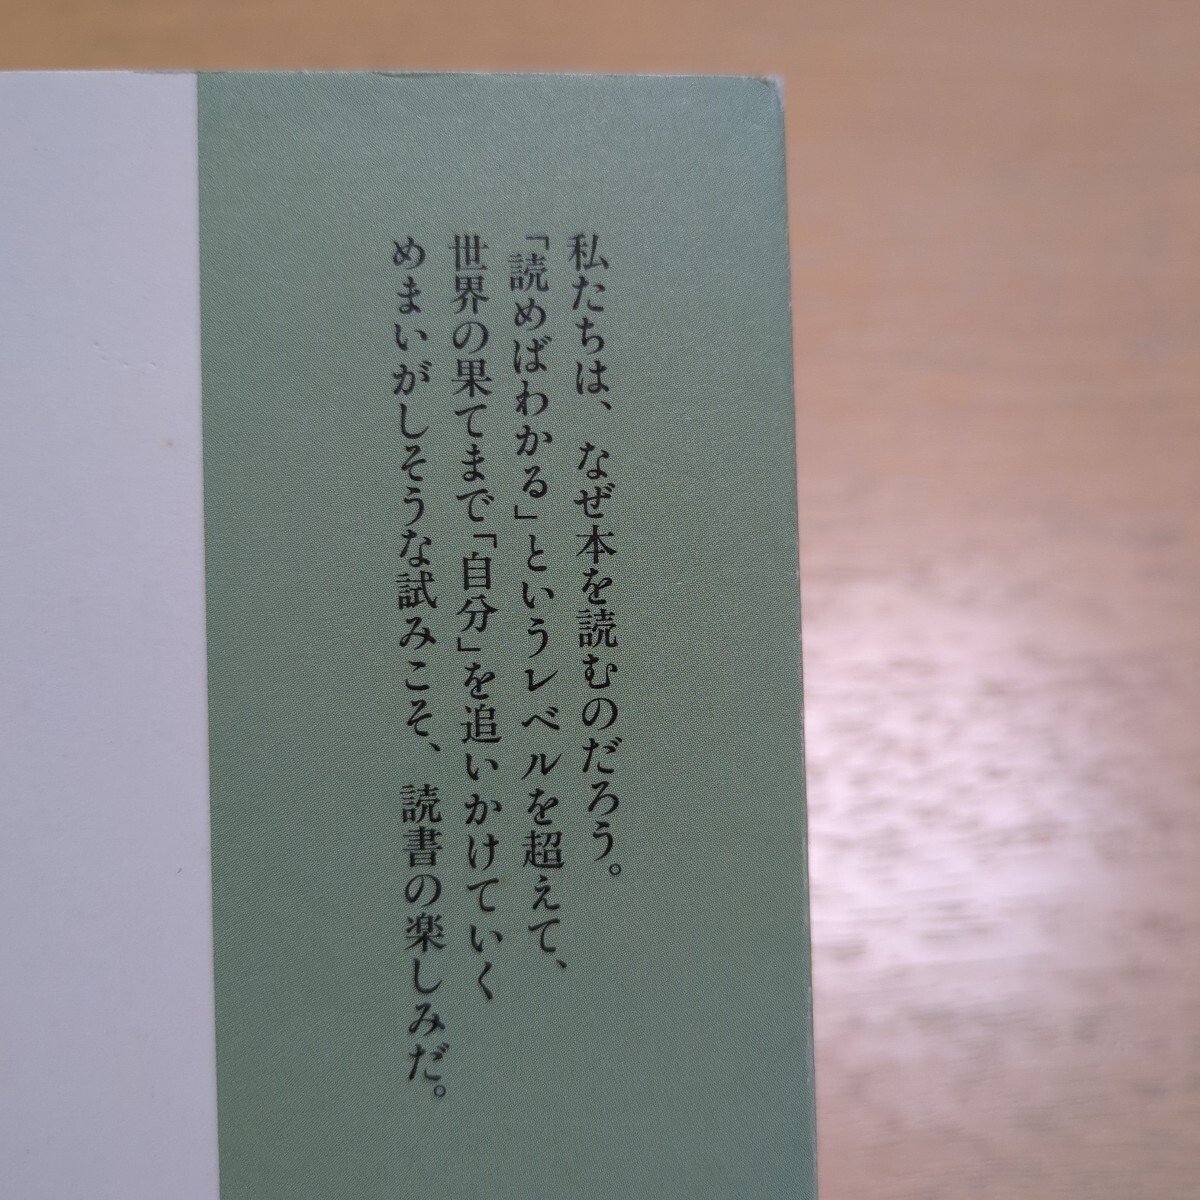 私たちは、なぜ本を読むのだろう。
「読めばわかる」というレベルを超えて、
世界の果てまで「自分」を追いかけていく
めまいがしそうな試みこそ、読書の楽しみだ。